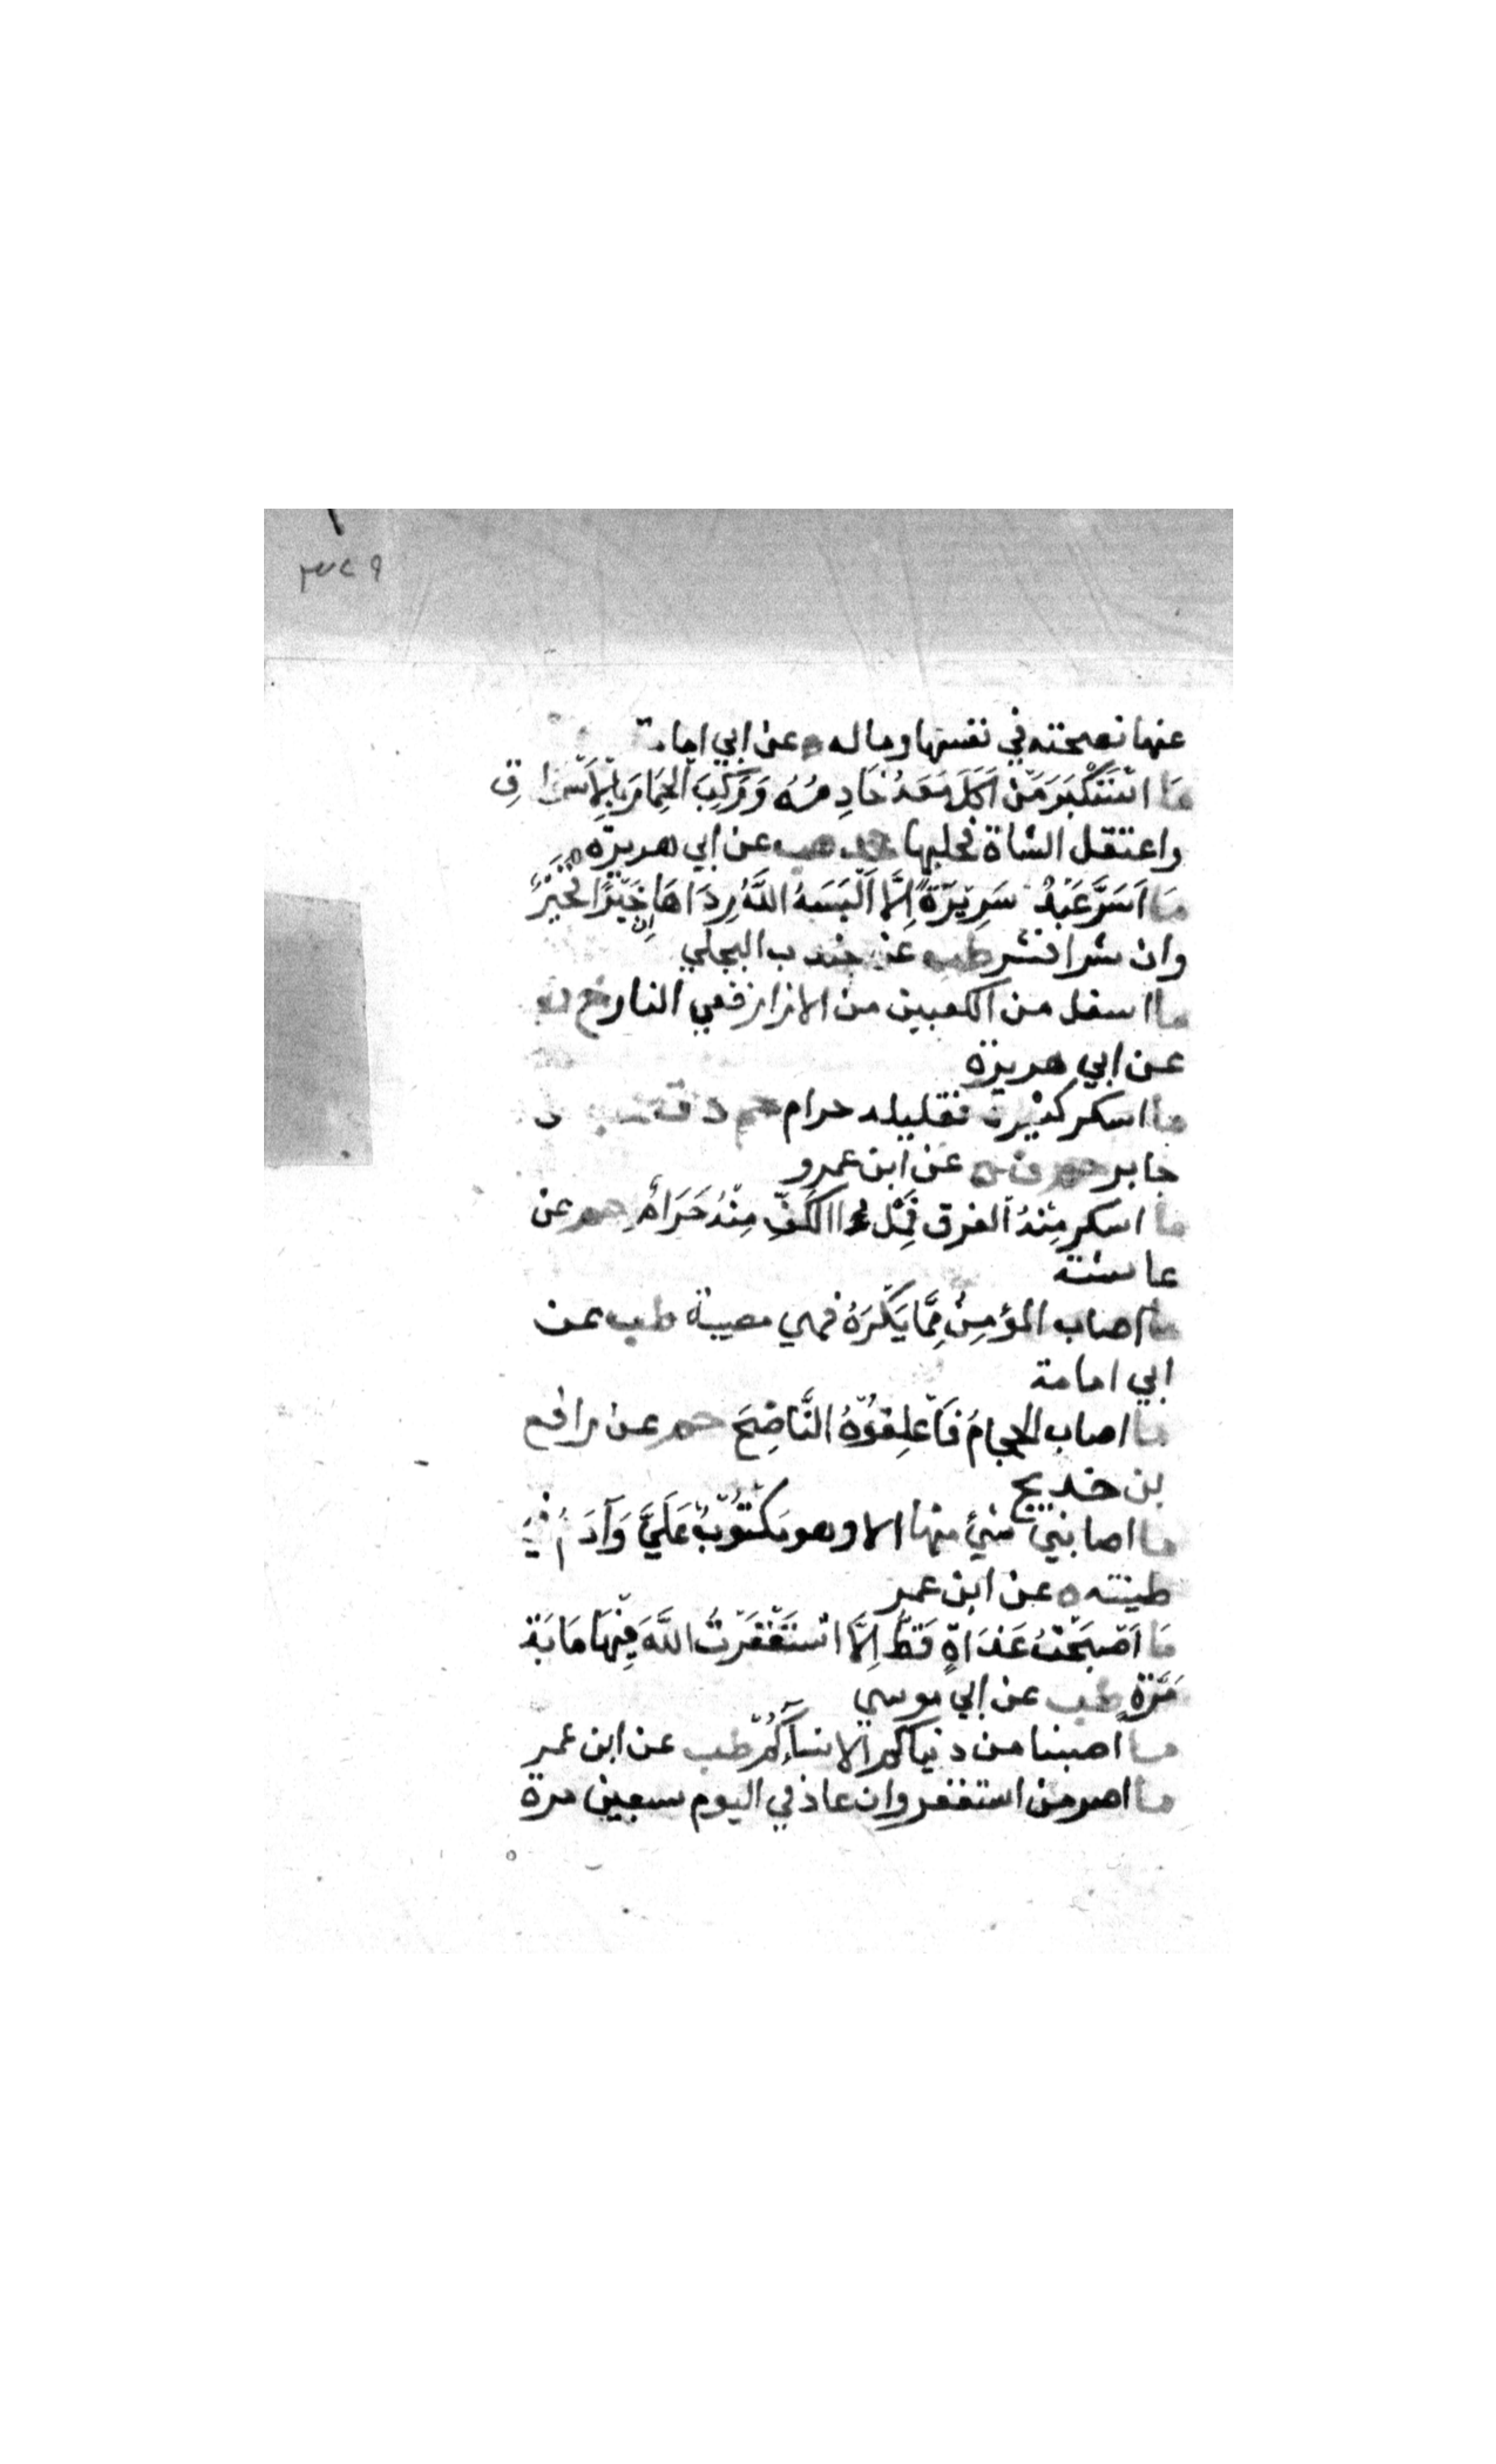 ٣٧٩
عنها نصحته في نفسها وماله ه عن ابي امامة
مَا اسْتَكْبَرَ مَنْ اَكَلَ مَعَهُ خَادِمُهُ وَرَكِبَ الْحِمَارَ بِالْاَسْوَاقِ
واعتقل الشاة فحلبها خد هب عن ابي هريرة
مَا اَسَرَّ عَبْدٌ سَرِيْرَةً اِلَّا اَلْبَسَهُ اللَّهُ رِدَاهَا اِنْ خَيْرًا فَخَيْرٌ
وان شرا فشر طب عن جندب البجلي
ما اسفل من الكعبين من الازار ففي النار خ ن
عن ابي هريرة
ما اسكر كثيره فقليله حرام حم د ت حب
جابر حم ن ه عن ابن عمرو
ما اسكر مِنْهُ الفرق فَمِلْءُ الكَفِّ مِنْهُ حَرَامٌ حم عن
عائشة
ما اصاب المؤمِنُ مِمَّا يَكْرَهُ فهي مصيبة طب عن
ابي امامة
ما اصاب الحجامُ فَاعْلِفُوْهُ النَّاضِحَ حم عن رافع
بن خديج
ما اصابني شيئ منها الا وهو مَكْتُوْبٌ عَلَيَّ وَآدَمُ فِيْ
طينته ه عن ابن عمر
مَا اَصْبَحْتُ غَدَاةً قَطُّ اِلَّا اسْتَغْفَرْتُ اللَّهَ فِيْهَا مَايَةَ
مَرَّةٍ طب عن ابي موسي
ما اصبنا من دنياكم الا نسآءَكُمْ طب عن ابن عمر
ما اصر من استغفر وان عاد في اليوم سبعين مرة